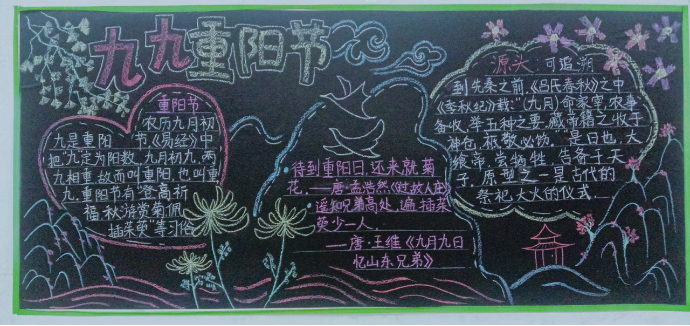 九九重阳节
重阳节
农历九月初
九是重阳 节《易经》中
把"九"定为阳数,九月初九,两
九相重,故而叫重阳,也叫重
九,重阳节有"登高祈
福,秋游赏菊,佩
插茱萸"等习俗
待到重阳日,还来就菊
花。——唐·孟浩然《过故人庄》
遥知兄弟高处,遍插茱
萸少一人。
——唐·王维《九月九日
忆山东兄弟》
源头:可追溯
到先秦之前,《吕氏春秋》之中
《季秋纪》载:"(九月)命家宰,农事
备收,举五种之要。藏帝籍之收于
神仓,祗敬必饬。""是日也,大
飨帝,尝牺牲,告备于天
子。原型之一是古代的
祭祀大火的仪式